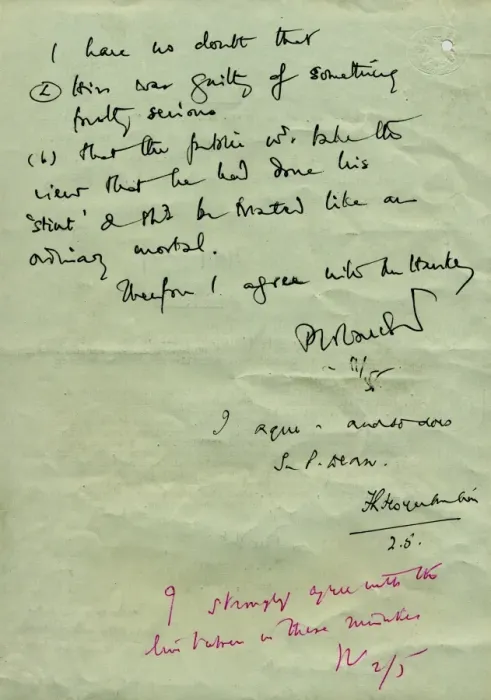 I have no doubt that
(a) Hiss was guilty of something
pretty serious
(b) that the public wd. take the
view that he had done his
'stint' & shd be treated like an
ordinary mortal.
Therefore I agree with Mr Hankey
11/5
I agree - and so does
Sir P. Dean.
2.5.
I strongly agree with the
line taken in these minutes
2/5